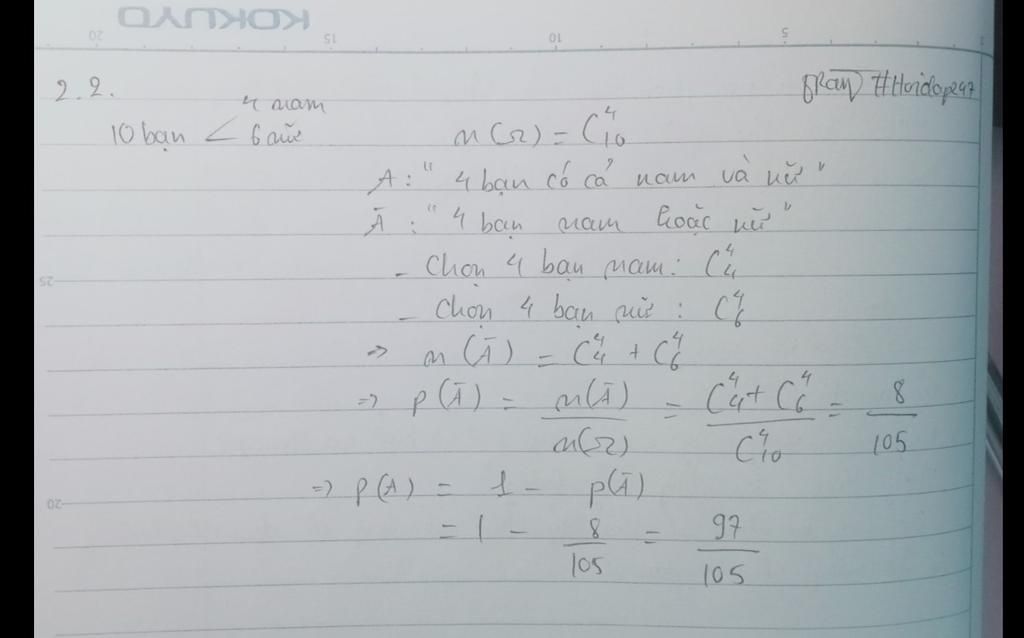 KOKUYO
20 15 10 5
2.2.
#Hoidap247
4 nam
10 bạn < 6 nữ
n(Ω) = C₁₀⁴
A: " 4 bạn có cả nam và nữ "
Ā : " 4 bạn nam hoặc nữ "
- Chọn 4 bạn nam: C₄⁴
25
- Chọn 4 bạn nữ : C₆⁴
=> n(Ā) = C₄⁴ + C₆⁴
=> p(Ā) = n(Ā)/n(Ω) = (C₄⁴ + C₆⁴)/C₁₀⁴ = 8/105
=> p(A) = 1 - p(Ā)
20
= 1 - 8/105 = 97/105